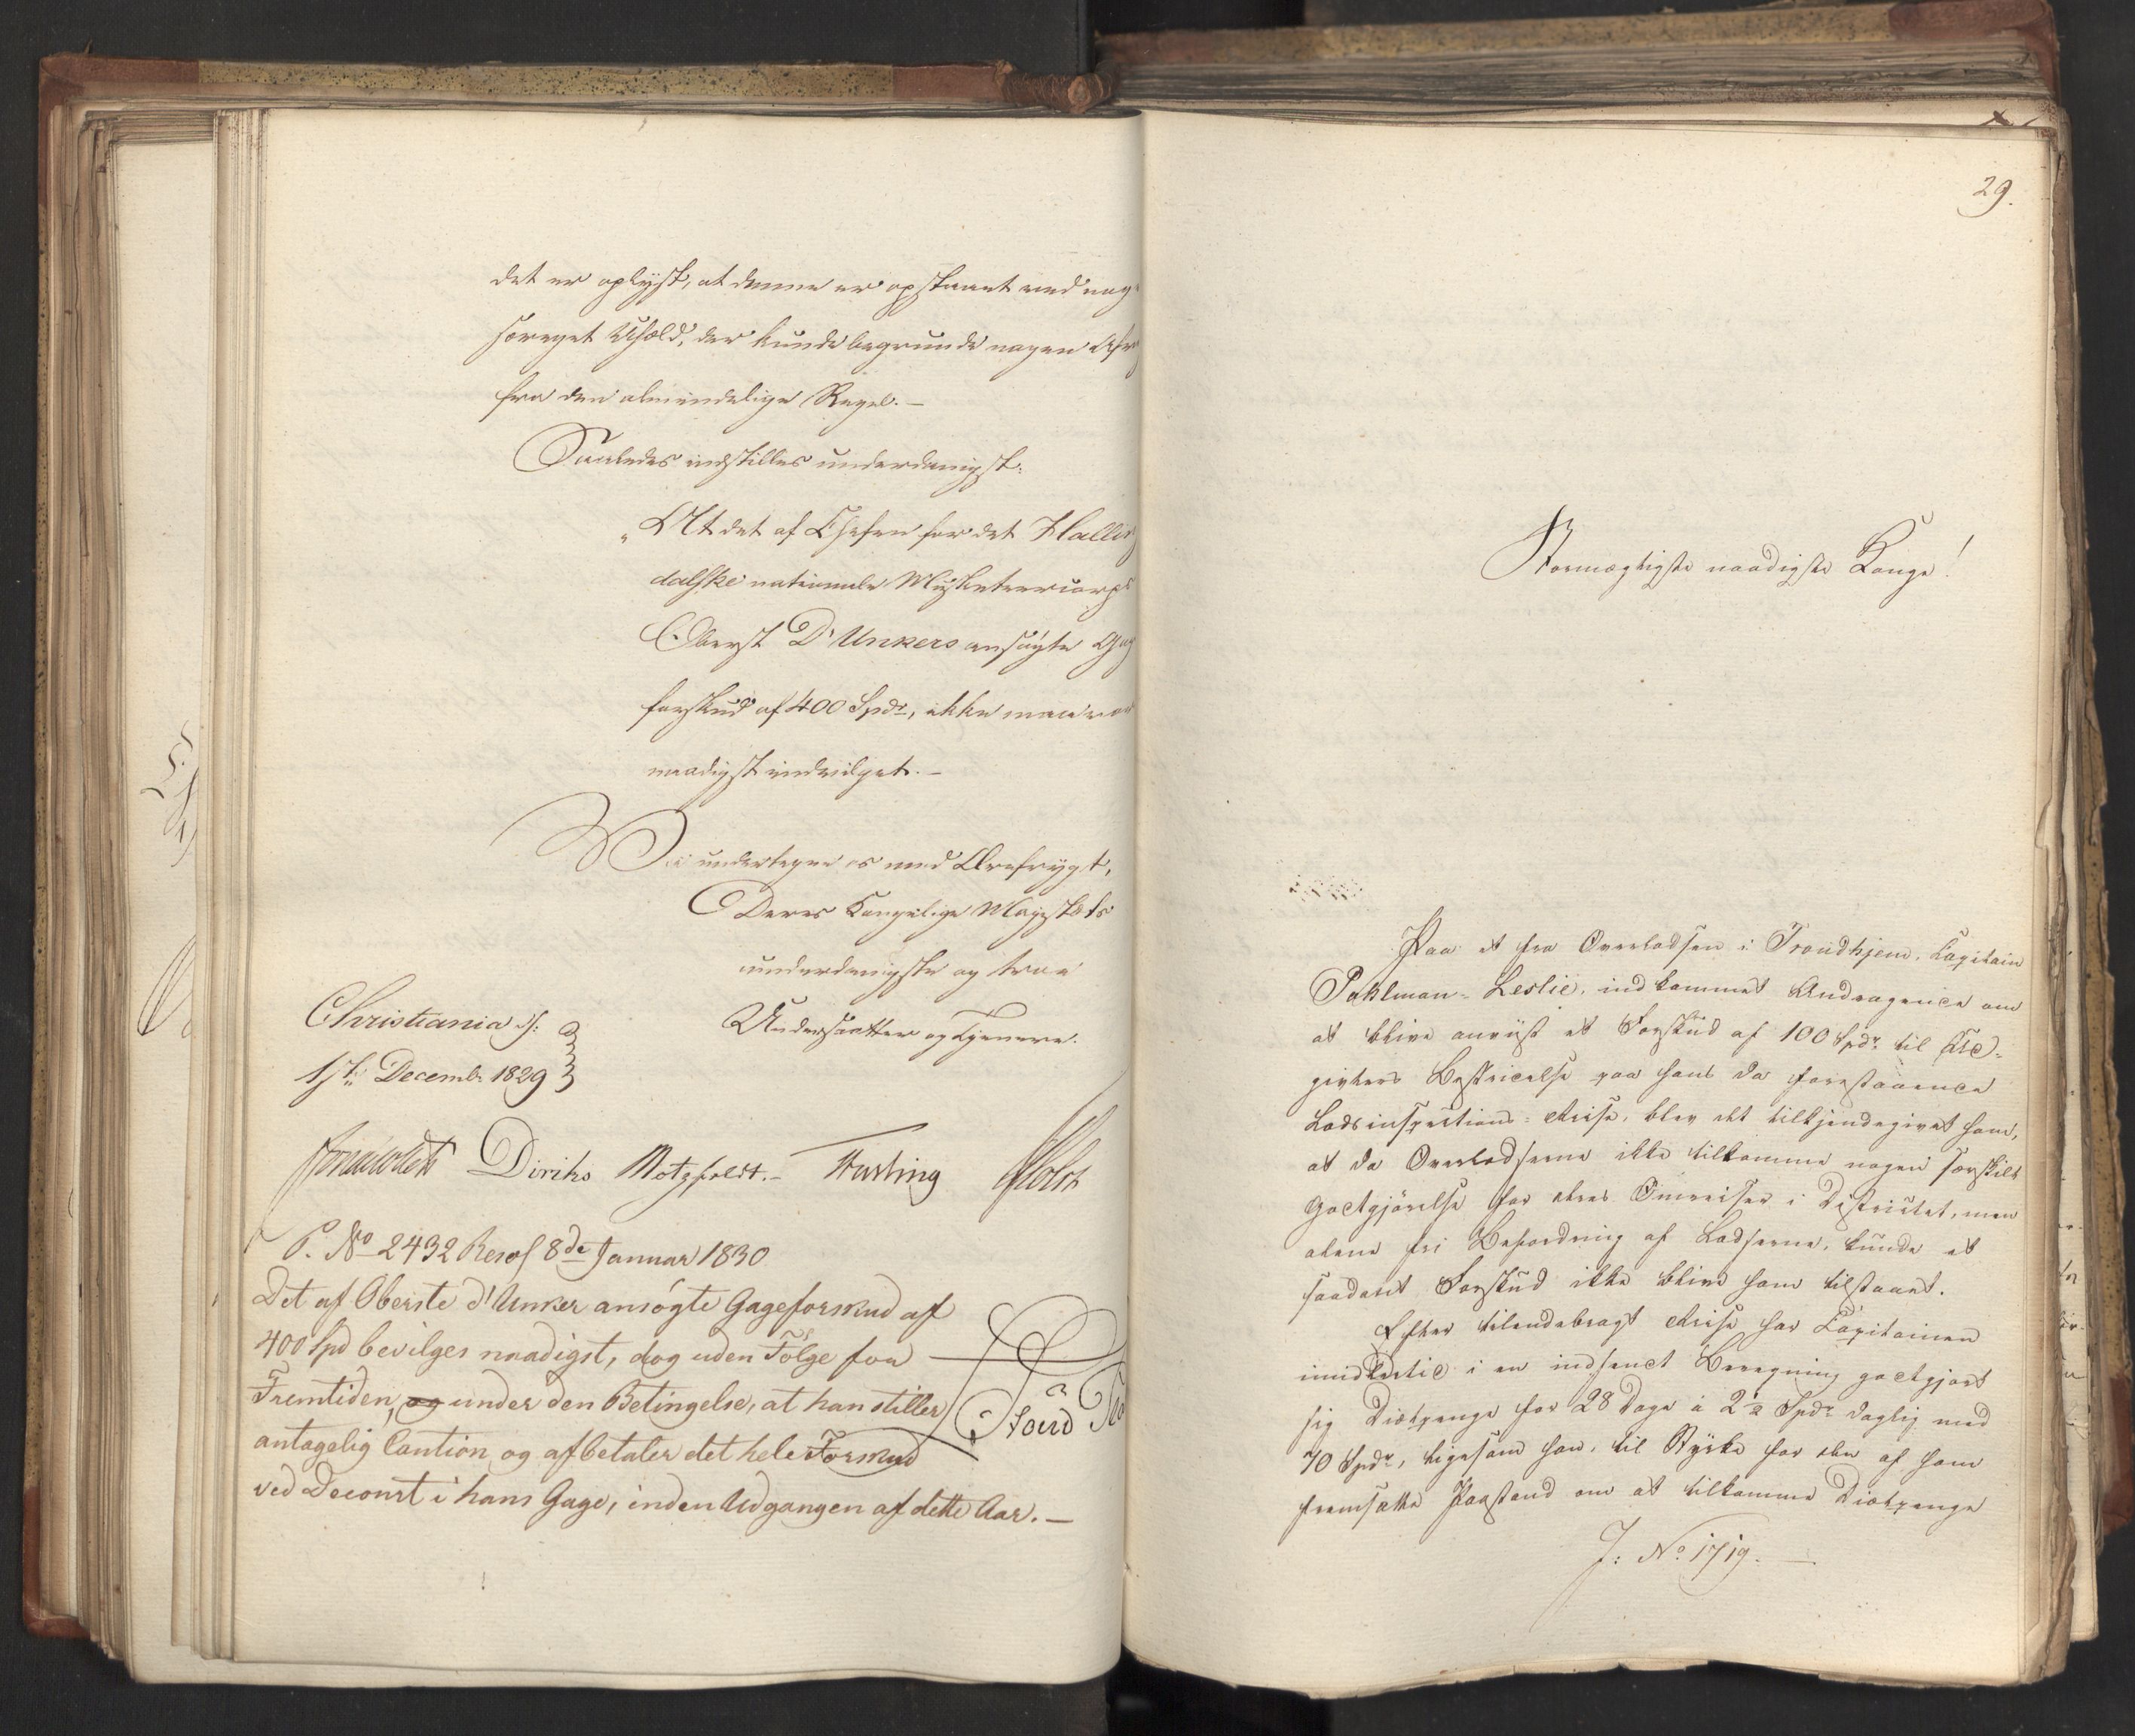 det er oplyst, at denne er opstaaet ved nog
særeget Uheld, der kunde begrunde nogen Afv
fra den almindelige Regel. –
Saaledes indstilles underdanigst:
„At det af Chefen for det Halling
dalske nationale Musketeercorps
Oberst D'Unkers ansøgte Gag
forskud af 400 Spdr, ikke maa vor
naadigst indvilget. –
Vi undertegne os med Ærefrygt,
Deres Kongelige Majestæts
underdanigste og troe
Undersaatter og Tjenere.
Christiania d:
17de Decembr 1829
Diriks Motzfeldt. – Fasting Holst
P. No 2432 Resol 8de Januar 1830
Det af Oberste d'Unker ansøgte Gageforskud af
400 Spd bevilges naadigst, dog uden Følge for
Fremtiden, og under den Betingelse, at han stiller
antagelig Caution og afbetaler det hele Forskud
ved Decourt i hans Gage, inden Udgangen af dette Aar. –
29.
Stormægtigste naadigste Konge!
Paa et fra Overlodsen i Trondhjem, Capitain
Pahlman-Leslie, indkommet Andragende om
at blive anviist et Forskud af 100 Spdr til Ud-
givters Bestridelse paa hans da forestaaende
Lodsinspections-Reise, blev det tilkjendegivet ham,
at da Overlodserne ikke tilkomme nogen særskilt
Godtgjörelse for deres Omreiser i Districtet, men
alene fri Befordring af Lodserne, kunde et
saadant Forskud ikke blive ham tilstaaet.
Efter tilendebragt Reise har Capitainen
imidlertid i en indsendt Beregning godtgjort
sig Diætpenge for 28 Dage à 2½ Spdr daglig med
70 Spdr, ligesom han, til Styrke for den af ham
fremsatte Paastand om at tilkomme Diætpenge
J: No 1719. –